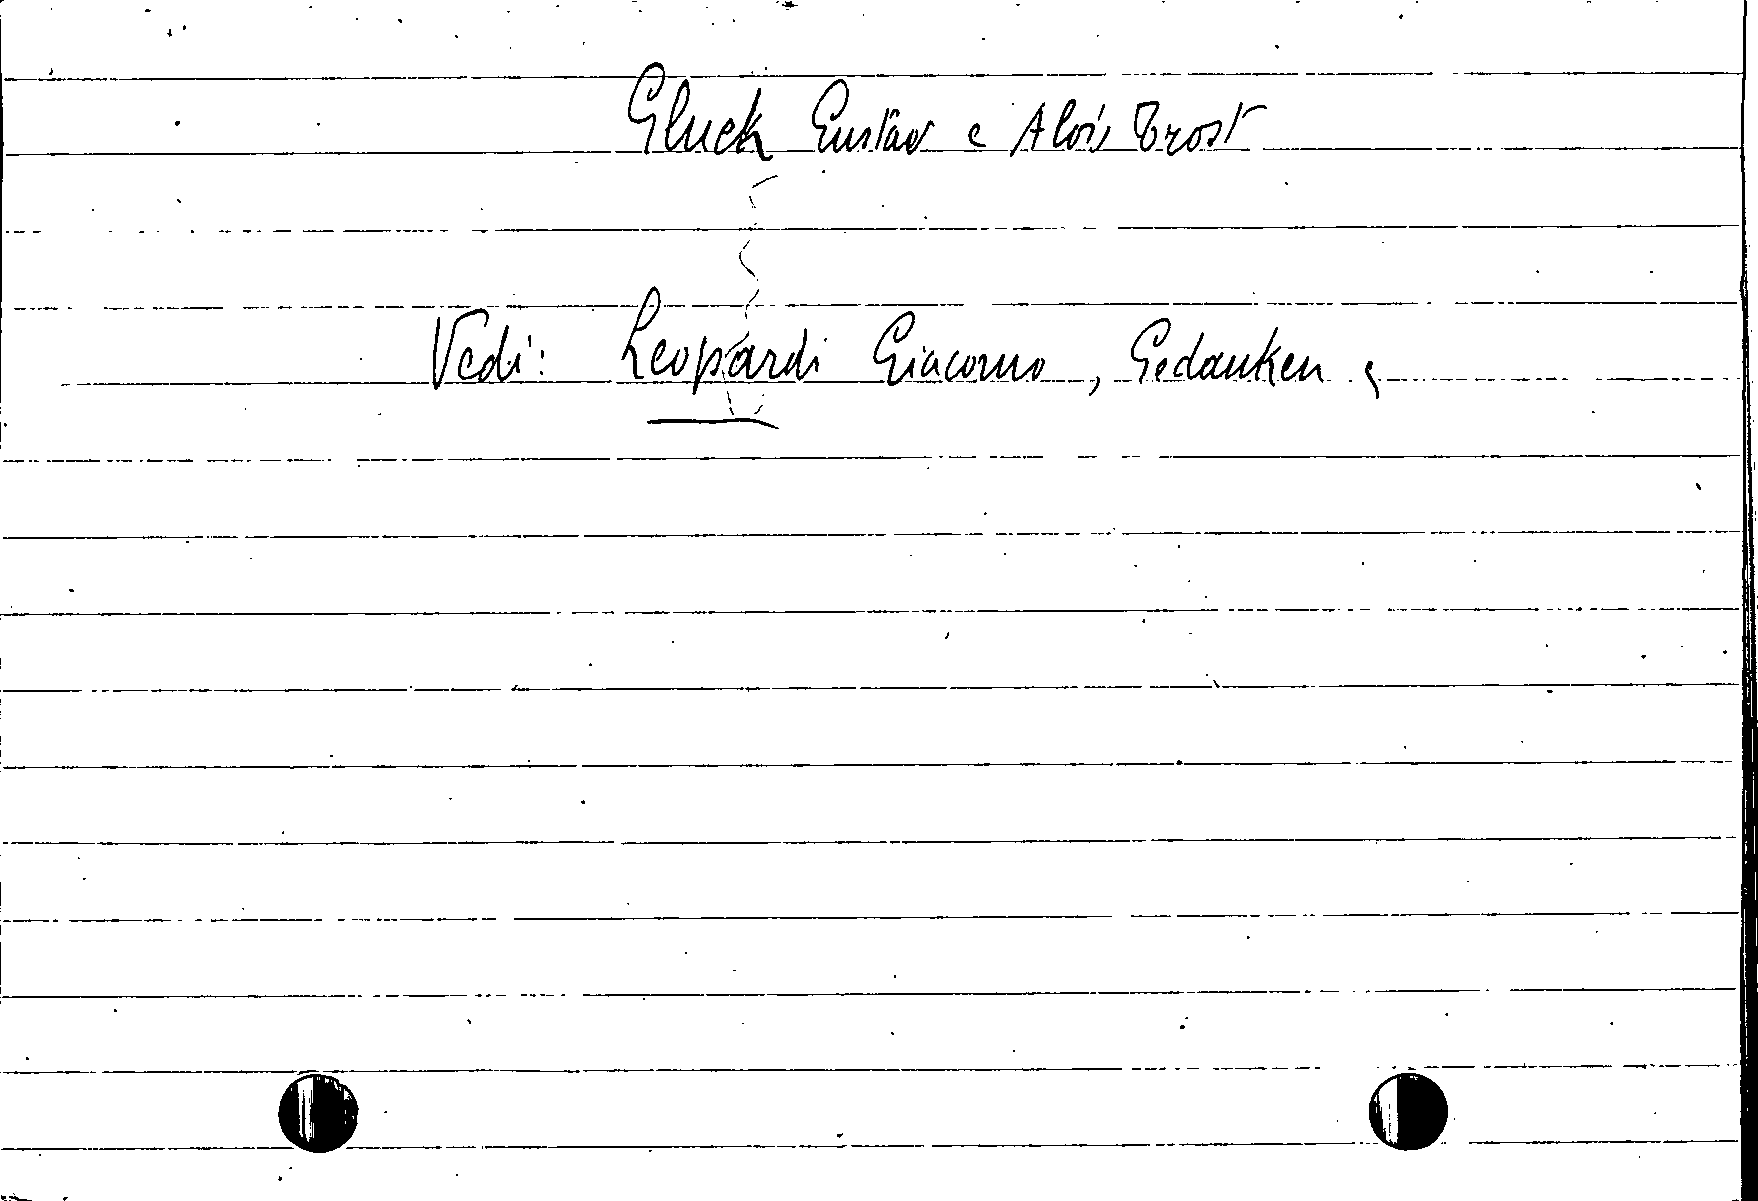 Gluck Gustav e Alois Trost
Vedi: Leopardi Giacomo, Gedanken,